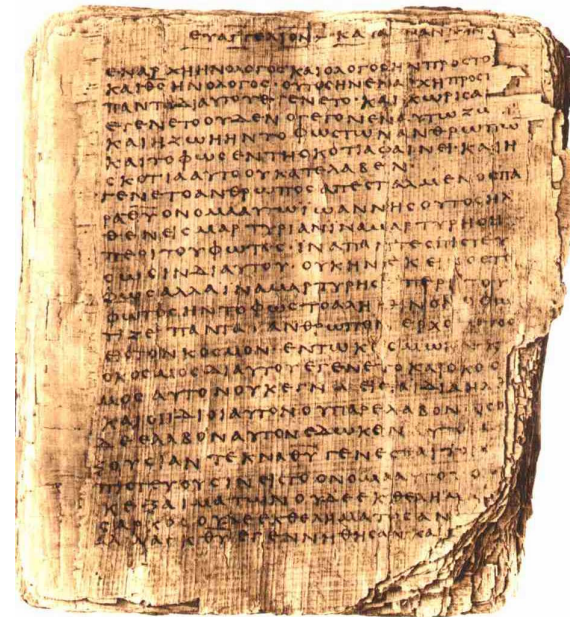 ΕΥΑΓΓΕΛΙΟΝ ΚΑΤΑ
ΕΝΑΡΧΗΗΝΟΛΟΓΟϹΚΑΙΟΛΟΓΟϹΗΝΠΡΟϹΤΟ
ΚΑΙΘϹΗΝΟΛΟΓΟϹ·ΟΥΤΟϹΗΝΕΝΑΡΧΗΠΡΟϹ
ΠΑΝΤΑΔΙΑΥΤΟΥΕΓΕΝΕΤΟ·ΚΑΙΧΩΡΙϹΑ
ΕΓΕΝΕΤΟΟΥΔΕΝΟΓΕΓΟΝΕΝ ΥΤΩΖΩ
ΚΑΙΗΖΩΗΗΝΤΟΦΩϹΤΩΝΑΝΘΡΩΠΩ
ΚΑΙΤΟΦΩϹΕΝΤΗϹΚΟΤΙΑΦΑΙΝΕΙ·ΚΑΙΗ
ϹΚΟΤΙΑΑΥΤΟΟΥΚΑΤΕΛΑΒΕΝ
ΓΕΝΕΤΟΑΝΘΡΩΠΟϹΑΠΕϹΤΑΛΜΕΝΟϹΠΑ
ΡΑΘΥΟΝΟΜΑΑΥΤΩΙΩΑΝΝΗϹΟΥΤΟϹΗΛ
ΘΕΝΕΙϹΜΑΡΤΥΡΙΑΝΙΝΑΜΑΡΤΥΡΗϹΗ
ΠΕΡΙΤΟΥΦΩΤΟϹ·ΙΝΑΠΑΝΤΕϹΠΙϹΤΕΥ
ϹΩϹΙΝΔΙΑΥΤΟΥ·ΟΥΚΗΝΕΚΕΙΝΟϹΤΟ
ΦΩϹΑΛΛΑΙΝΑΜΑΡΤΥΡΗϹΗΠΕΡΙΤΟΥ
ΦΩΤΟϹΗΝΤΟΦΩϹΤΟΑΛΗΘΙΝΟΝΟΦΩ
ΤΙΖΕΙΠΑΝΤΑΑΝΘΡΩΠΟΝΕΡΧΟΜΕΝΟ
ΕΙϹΤΟΝΚΟϹΜΟΝ·ΕΝΤΩΚΟϹΜΩΗΝ
ΟΚΟϹΜΟϹΔΙΑΥΤΟΥΕΓΕΝΕΤΟΚΑΙΟΚΟϹ
ΜΟϹΑΥΤΟΝΟΥΚΕΓΝΩ ΕΙϹ ΙΔΙΑΗΛ
ΚΑΙΟΙΙΔΙΟΙΑΥΤΟΝΟΥΠΑΡΕΛΑΒΟΝ·ΟϹΟ
ΔΕΕΛΑΒΟΝΑΥΤΟΝΕΔΩΚΕΝ
ΞΟΥϹΙΑΝΤΕΚΝΑΘΥΓΕΝΕϹΘΑΙ
ΠΙϹΤΕΥΟΥϹΙΝΕΙϹΤΟΟΝΟΜΑ
ΚΕΞΑΙΜΑΤΩΝΟΥΔΕΕΚΘΕΛΗΜΑ
ϹΑΡΚΟϹΟΥΔΕΕΚΘΕΛΗΜΑΤΟϹΑΝ
ΕΚΘΥΕΓΕΝΝΗΘΗϹΑΝ ΚΑΙ